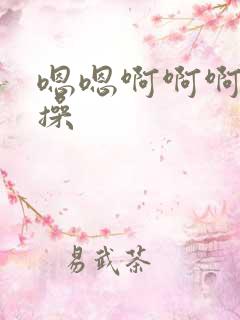 嗯嗯啊啊啊
操
易武茶